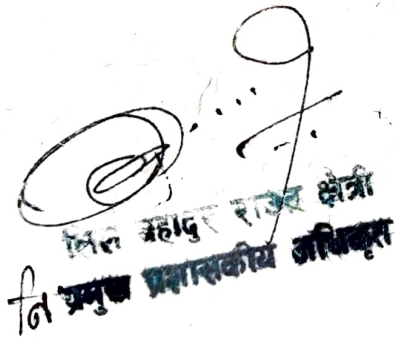 बहादुर राउत क्षेत्री
नि प्रमुख प्रशासकीय अधिकृत